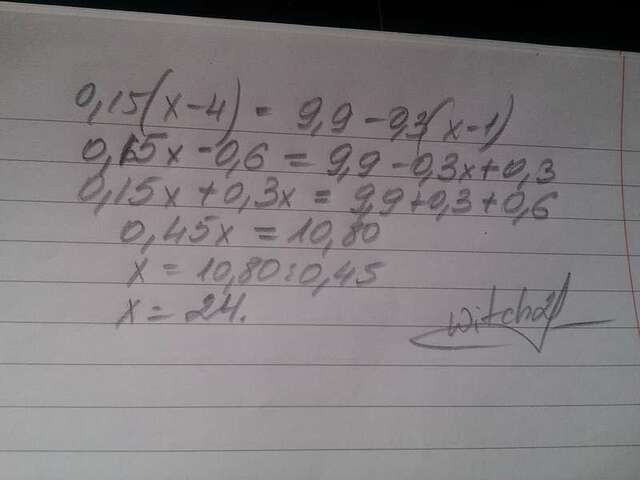 0,15(x-4) = 9,9 - 0,3(x-1)
0,15x - 0,6 = 9,9 - 0,3x + 0,3
0,15x + 0,3x = 9,9 + 0,3 + 0,6
0,45x = 10,80
x = 10,80:0,45
x = 24.